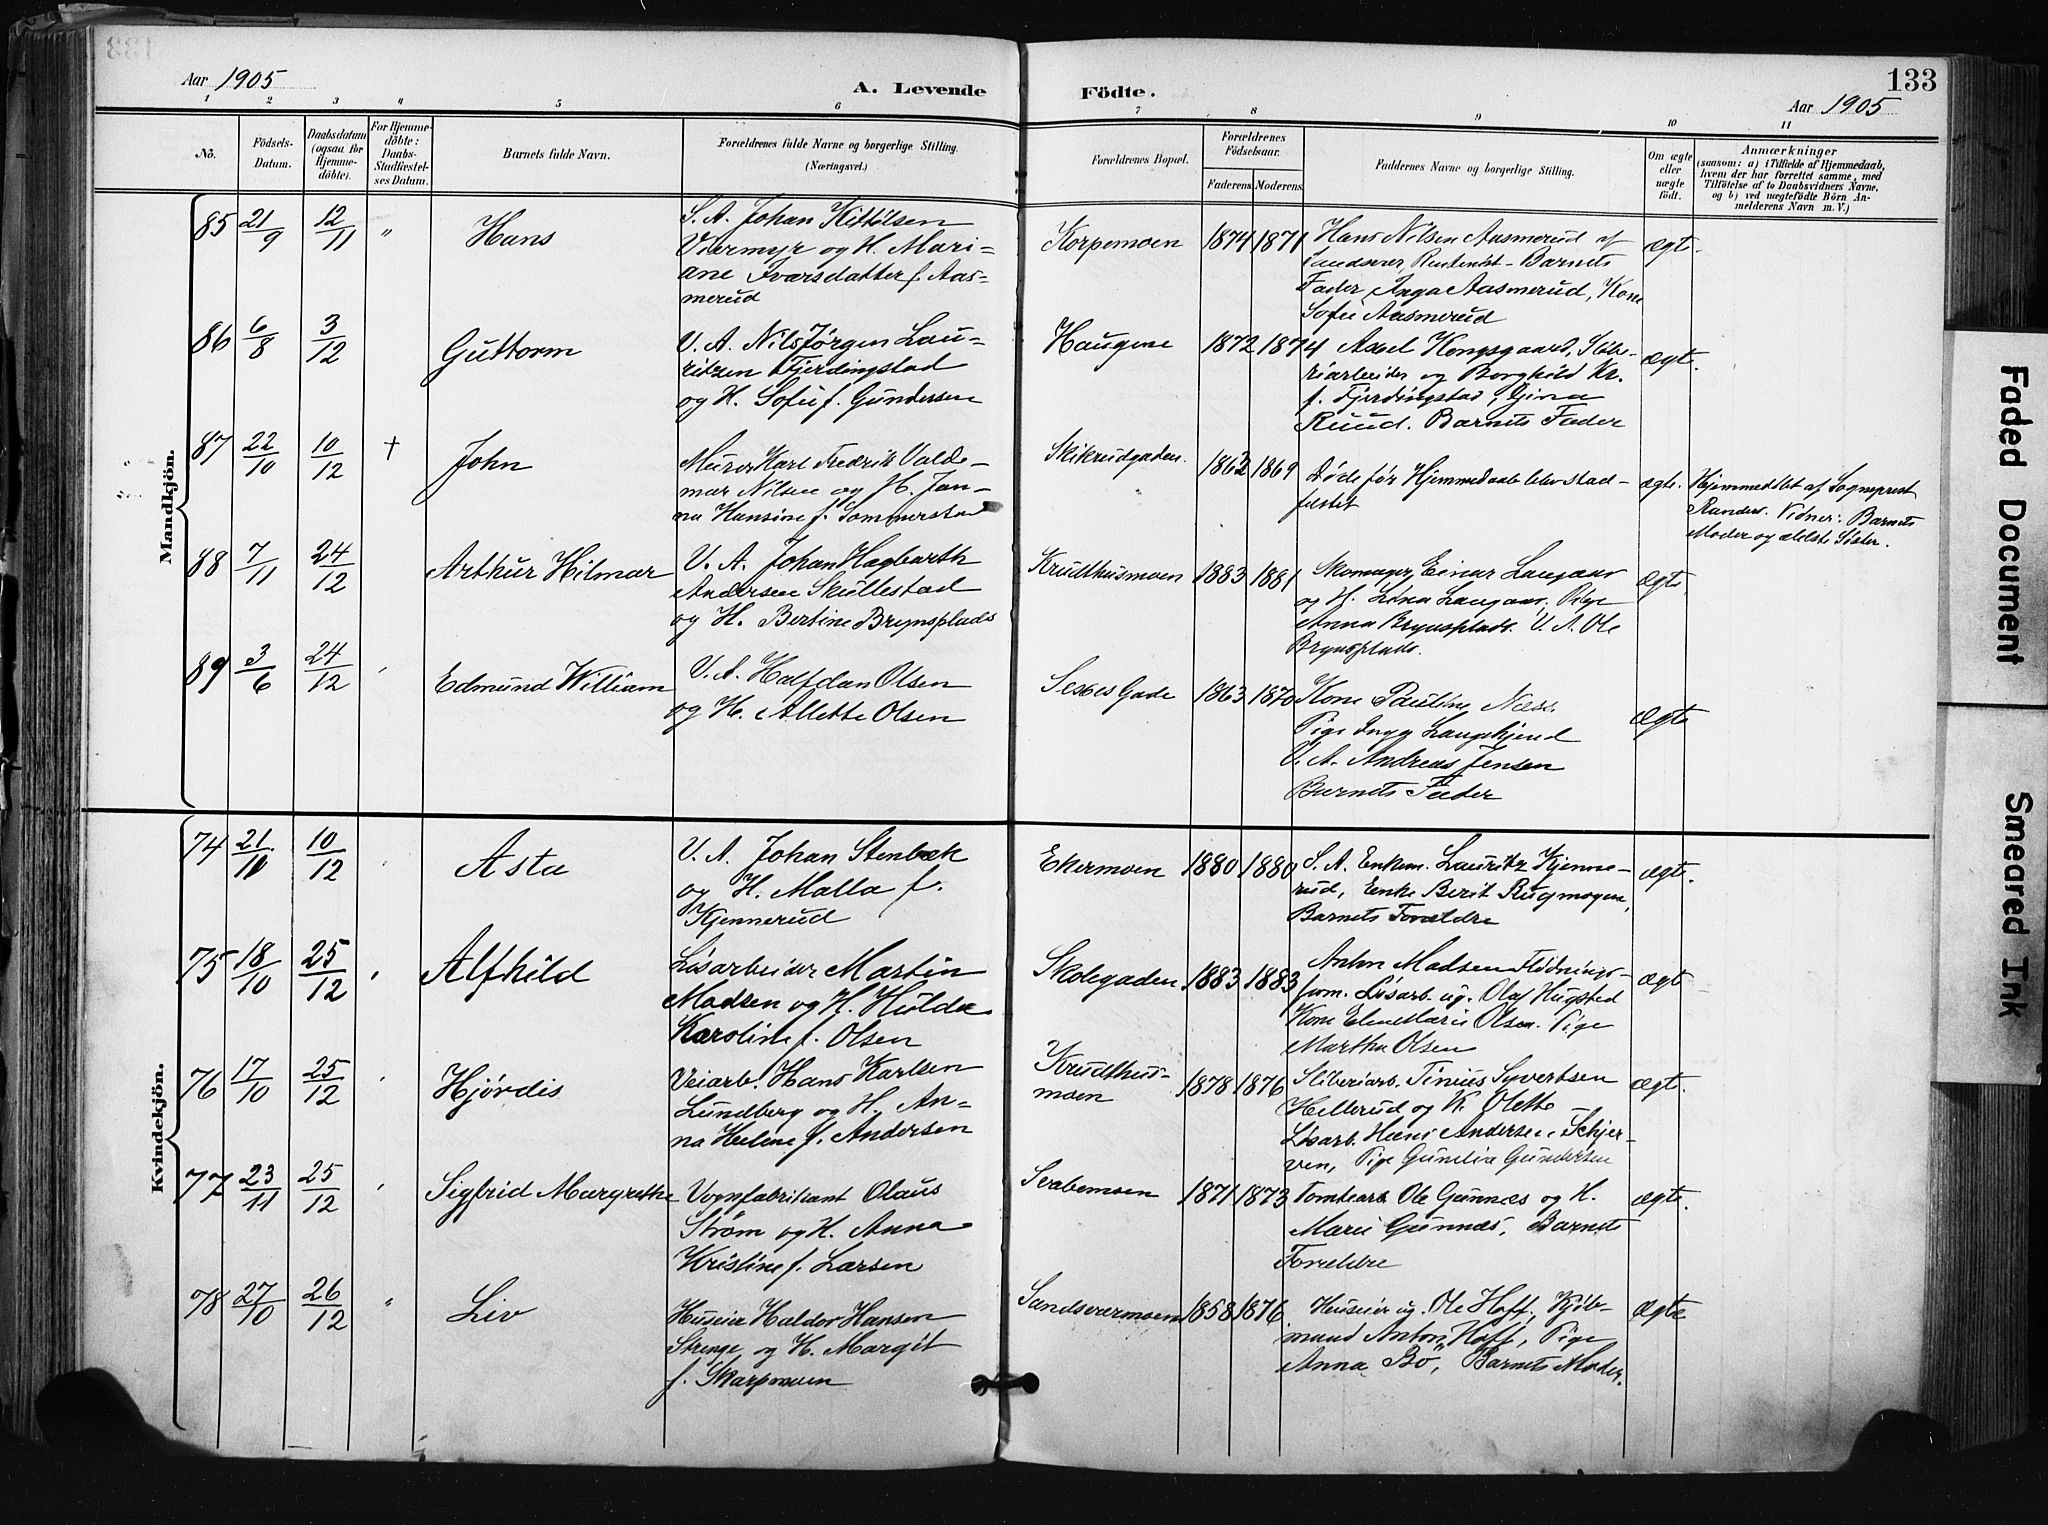 133
Aar 1905
A. Levende Födte.
Aar 1905
1 2 3 4 5 6 7 8 9 10 11
No.
Födsels-
Datum.
Daabsdatum
(ogsaa for
Hjemme-
döbte).
For Hjemme-
döbte:
Daabs-
Stadfæstel-
ses Datum.
Barnets fulde Navn.
Forældrenes fulde Navne og borgerlige Stilling.
(Næringsvei.)
Forældrenes Bopæl.
Forældrenes
Födselsaar.
Faderens. Moderens.
Faddernes Navne og borgerlige Stilling.
Om ægte
eller
uægte
födt.
Anmærkninger
(saasom: a) i Tilfælde af Hjemmedaab,
hvem der har forrettet samme, med
Tilföielse af to Daabsvidners Navne,
og b) ved uægtefödte Börn An-
melderens Navn m. V.)
Mandkjön.
85 21/9 12/11 " Hans
S. A. Johan Kittølsen
Vermyr og H. Mari-
ane Iversdatter f. Aas-
merud
Korpemoen 1874 1871
Hans Nilsen Aasmerud af
Sandsver, Rentenist - Barnets
Fader, Inga Aasmerud, Kone
Sofie Aasmerud
ægt.
86 6/8 3/12 Guttorm
U. A. Nils Jørgen Lau-
ritzen Fjerdingstad
og H. Sofie f. Gundersen
Haugene 1872 1874
Axel Kongsgaard, Slibe-
riarbeider og Borghild Kr.
f. Fjerdingstad, Gina
Ruud. Barnets Fader
ægt.
87 22/10 10/12 + John
Murer Karl Fredrik Valde-
mar Nilsen og H. Jan-
na Hansine f. Sommerstad
Skikrudgaden. 1862 1869
Døde før Hjemmedaab blev stad-
fæstet
ægte.
Hjemmedøbt af Sogneprest
Randers. Vidner: Barnets
Moder og ældste Søster.
88 7/11 24/12 Arthur Hilmar
U. A. Johan Hagbarth
Andersen Skullestad
og H. Bertine Brynsplads
Krudthusmoen 1883 1881
Skomager Einar Laugaar
og H. Lina Laugaar. Pige
Anna Brynsplads. U. A. Ole
Brynsplads.
ægte.
89 3/6 24/12 Edmund William
U. A. Halfdan Olsen
og H. Allette Olsen
Sexes Gade 1863 1870
Kone Pauline Næss.
Pige Inga Laugskjend
U. A. Andreas Jensen
Barnets Fader
ægte
Kvindekjön.
74 21/10 10/12 Asta
U. A. Johan Stenbæk
og H. Malla f.
Kjennerud
Ekermoen 1880 1880
S. A. Enkem. Lauritz Kjenne-
rud, Enke Berit Rugmogen,
Barnets Forældre
ægte.
75 18/10 25/12 Alfhild
Løsarbeider Martin
Madsen og H. Hulda
Karoline f. Olsen
Skolegaden. 1883 1883
Anton Madsen Flødnings-
form. Løsarb. ug. Olaf Hugsted
Kone Elen Marie Olsen. Pige
Martha Olsen
ægt
76 17/10 25/12 Hjørdis
Veiarb. Hans Karlsen
Lundberg og H. An-
na Helene f. Andersen
Krudthus-
moen 1878 1876
Sliberiarb. Tinius Syvertsen
Hellerud og K. Olette
Løsarb. Hans Andersen Skjer-
ven, Pige Gunelia Gundersen
ægt.
77 23/11 25/12 Sigfrid Margrethe
Vognfabrikant Olaus
Strøm og H. Anna
Kristine f. Larsen
Scabemoen 1871 1873
Tomtearb. Ole Gunnæs og H.
Marie Gunnæs, Barnets
Forældre
ægte.
78 27/10 26/12 " Liv
Huseier Haldor Hansen
Strenge og H. Margit
f. Skarpmoen
Sandsvermoen 1858 1876
Huseier ug. Ole Hoff, Kjøb-
mand Anton Hoff, Pige
Anna Bø, Barnets Moder.
ægte
Faded Document
Smeared Ink